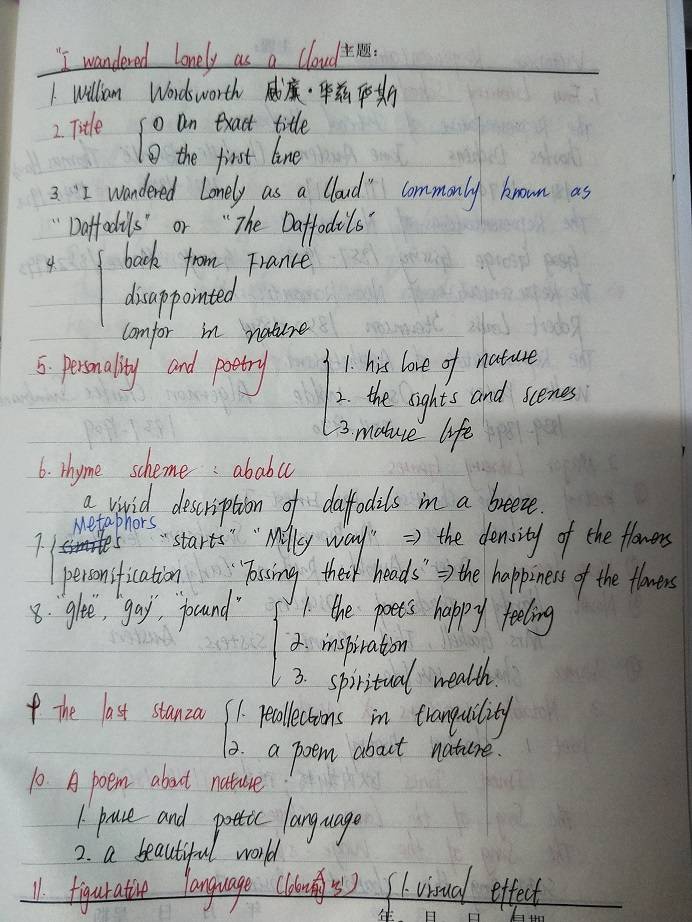 "I wandered lonely as a cloud 主题:
1. William Wordsworth 威廉·华兹华斯
2. Title ① An exact title
② the first line
3. "I wandered Lonely as a Cloud" commonly known as
"Daffodils" or "The Daffodils"
4. back from France
disappointed
comfor in nature
5. personality and poetry 1. his love of nature
2. the sights and scenes
3. mature life
6. rhyme scheme : ababcc
a vivid description of daffodils in a breeze.
Metaphors
7. similes "starts" "Milky way" => the density of the flowers
personification "Tossing their heads" => the happiness of the flowers
8. "glee", "gay", "jocund" 1. the poet's happy feeling
2. inspiration
3. spiritual wealth.
9 The last stanza 1. recollections in tranquility
2. a poem about nature.
10. A poem about nature
1. pure and poetic language
2. a beautiful world
11. figurative language ( 1. visual effect
年 月 日 星期